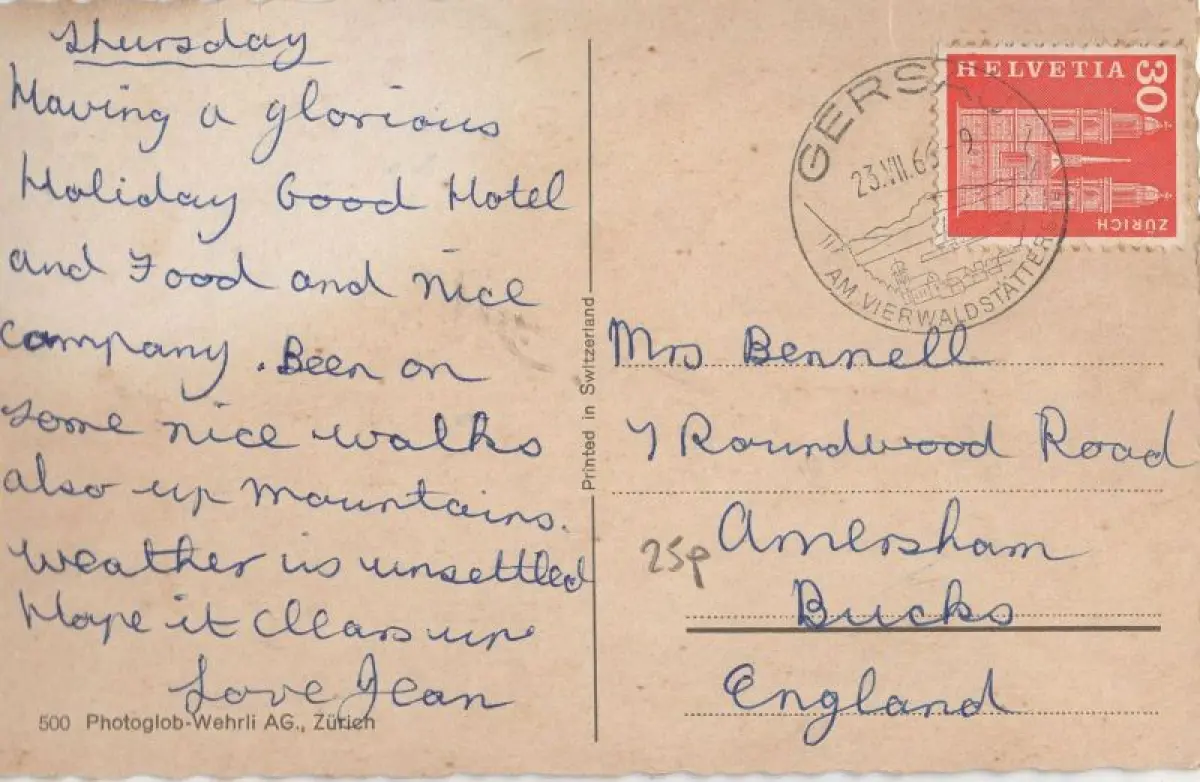 Thursday
Having a glorious
Holiday Good Hotel
and Food and nice
company. Been on
some nice walks
also up mountains.
weather is unsettled
Hope it clears up
Love Jean
500 Photoglob-Wehrli AG., Zürich
Printed in Switzerland
HELVETIA
30
ZÜRICH
GERSAU
23.VII.66-9
AM VIERWALDSTÄTTERS
Mrs Bennell
7 Roundwood Road
Amersham
Bucks
England
25p